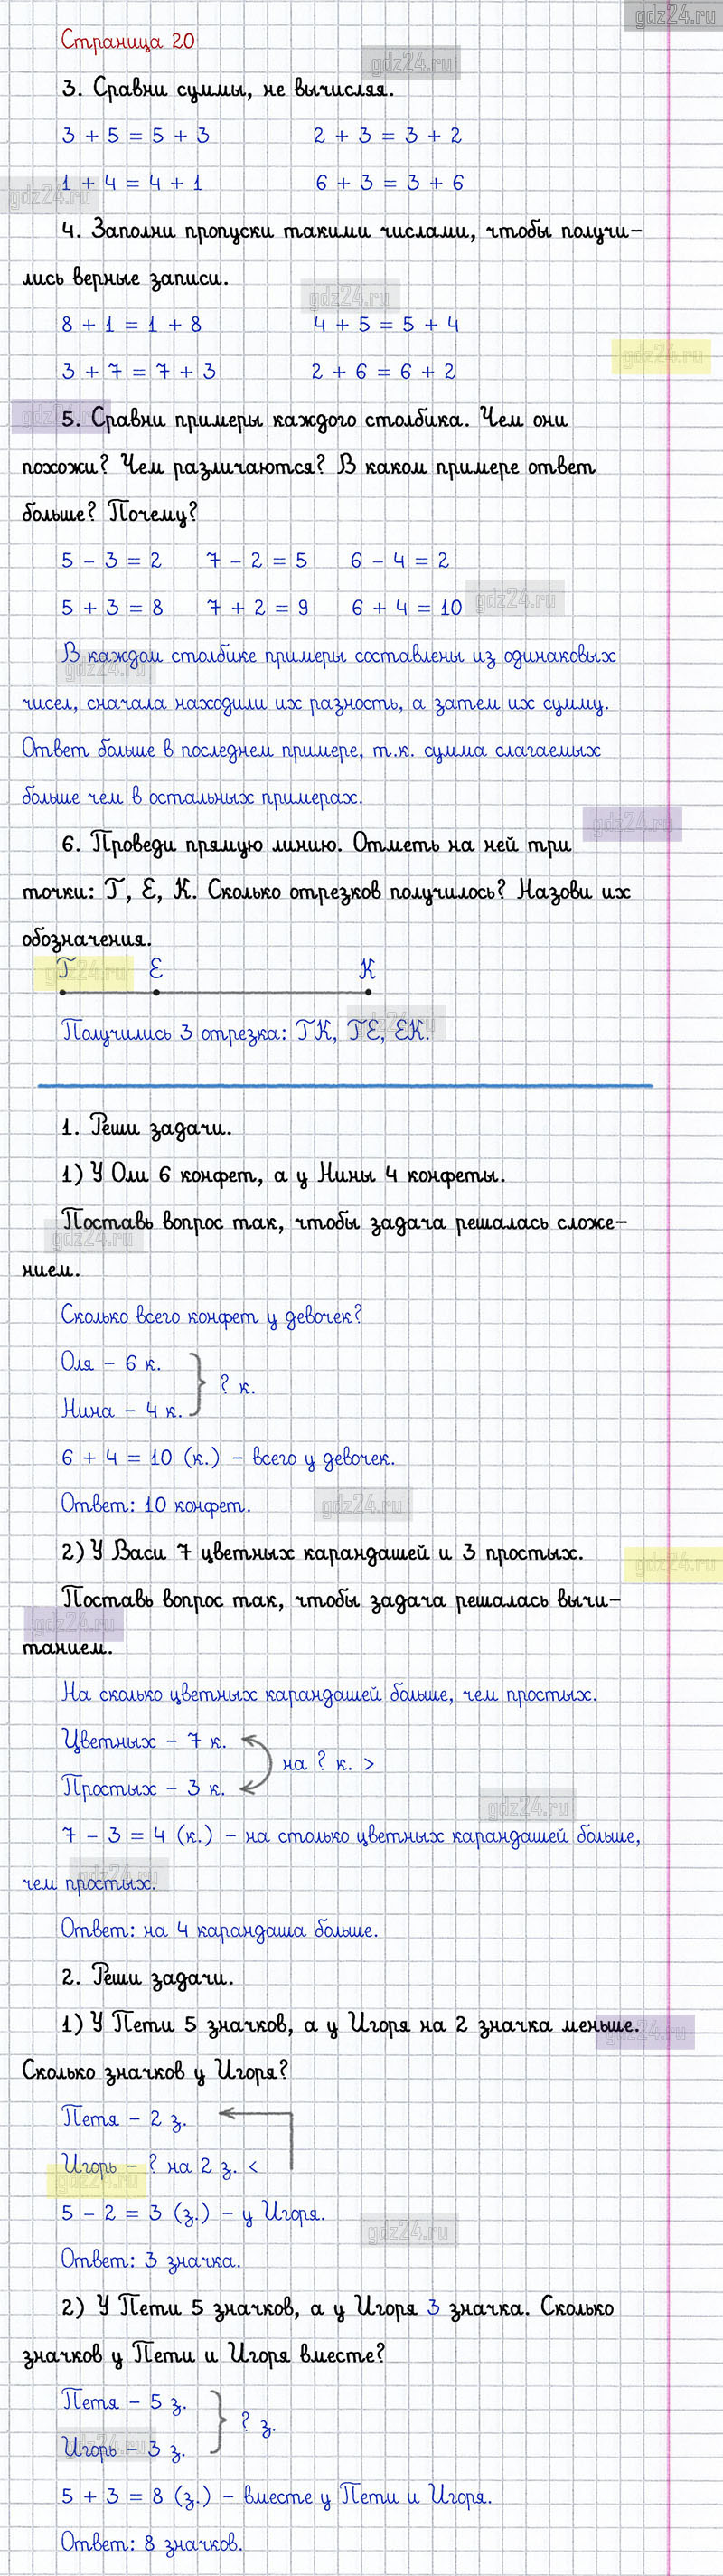 gdz24.ru
Страница 20
gdz24.ru
3. Сравни суммы, не вычисляя.
3 + 5 = 5 + 3 2 + 3 = 3 + 2
1 + 4 = 4 + 1 6 + 3 = 3 + 6
gdz24.ru
4. Заполни пропуски такими числами, чтобы получи-
лись верные записи.
gdz24.ru
8 + 1 = 1 + 8 4 + 5 = 5 + 4
gdz24.ru
3 + 7 = 7 + 3 2 + 6 = 6 + 2
gdz24.ru
5. Сравни примеры каждого столбика. Чем они
похожи? Чем различаются? В каком примере ответ
больше? Почему?
5 - 3 = 2 7 - 2 = 5 6 - 4 = 2
5 + 3 = 8 7 + 2 = 9 6 + 4 = 10
gdz24.ru
В каждом столбике примеры составлены из одинаковых
gdz24.ru
чисел, сначала находили их разность, а затем их сумму.
Ответ больше в последнем примере, т.к. сумма слагаемых
больше чем в остальных примерах.
gdz24.ru
6. Проведи прямую линию. Отметь на ней три
точки: Т, Е, К. Сколько отрезков получилось? Назови их
обозначения.
gdz24.ru
Т Е К
Получились 3 отрезка: ТК, ТЕ, ЕК.
gdz24.ru
1. Реши задачи.
1) У Оли 6 конфет, а у Нины 4 конфеты.
Поставь вопрос так, чтобы задача решалась сложе-
gdz24.ru
нием.
Сколько всего конфет у девочек?
Оля - 6 к.
? к.
Нина - 4 к.
6 + 4 = 10 (к.) - всего у девочек.
Ответ: 10 конфет.
gdz24.ru
2) У Васи 7 цветных карандашей и 3 простых.
gdz24.ru
Поставь вопрос так, чтобы задача решалась вычи-
gdz24.ru
танием.
На сколько цветных карандашей больше, чем простых.
Цветных - 7 к.
на ? к. >
Простых - 3 к.
gdz24.ru
7 - 3 = 4 (к.) - на столько цветных карандашей больше,
gdz24.ru
чем простых.
Ответ: на 4 карандаша больше.
2. Реши задачи.
1) У Пети 5 значков, а у Игоря на 2 значка меньше.
gdz24.ru
Сколько значков у Игоря?
Петя - 2 з.
Игорь - ? на 2 з. <
gdz24.ru
5 - 2 = 3 (з.) - у Игоря.
gdz24.ru
Ответ: 3 значка.
2) У Пети 5 значков, а у Игоря 3 значка. Сколько
значков у Пети и Игоря вместе?
Петя - 5 з.
? з.
Игорь - 3 з.
gdz24.ru
5 + 3 = 8 (з.) - вместе у Пети и Игоря.
Ответ: 8 значков.